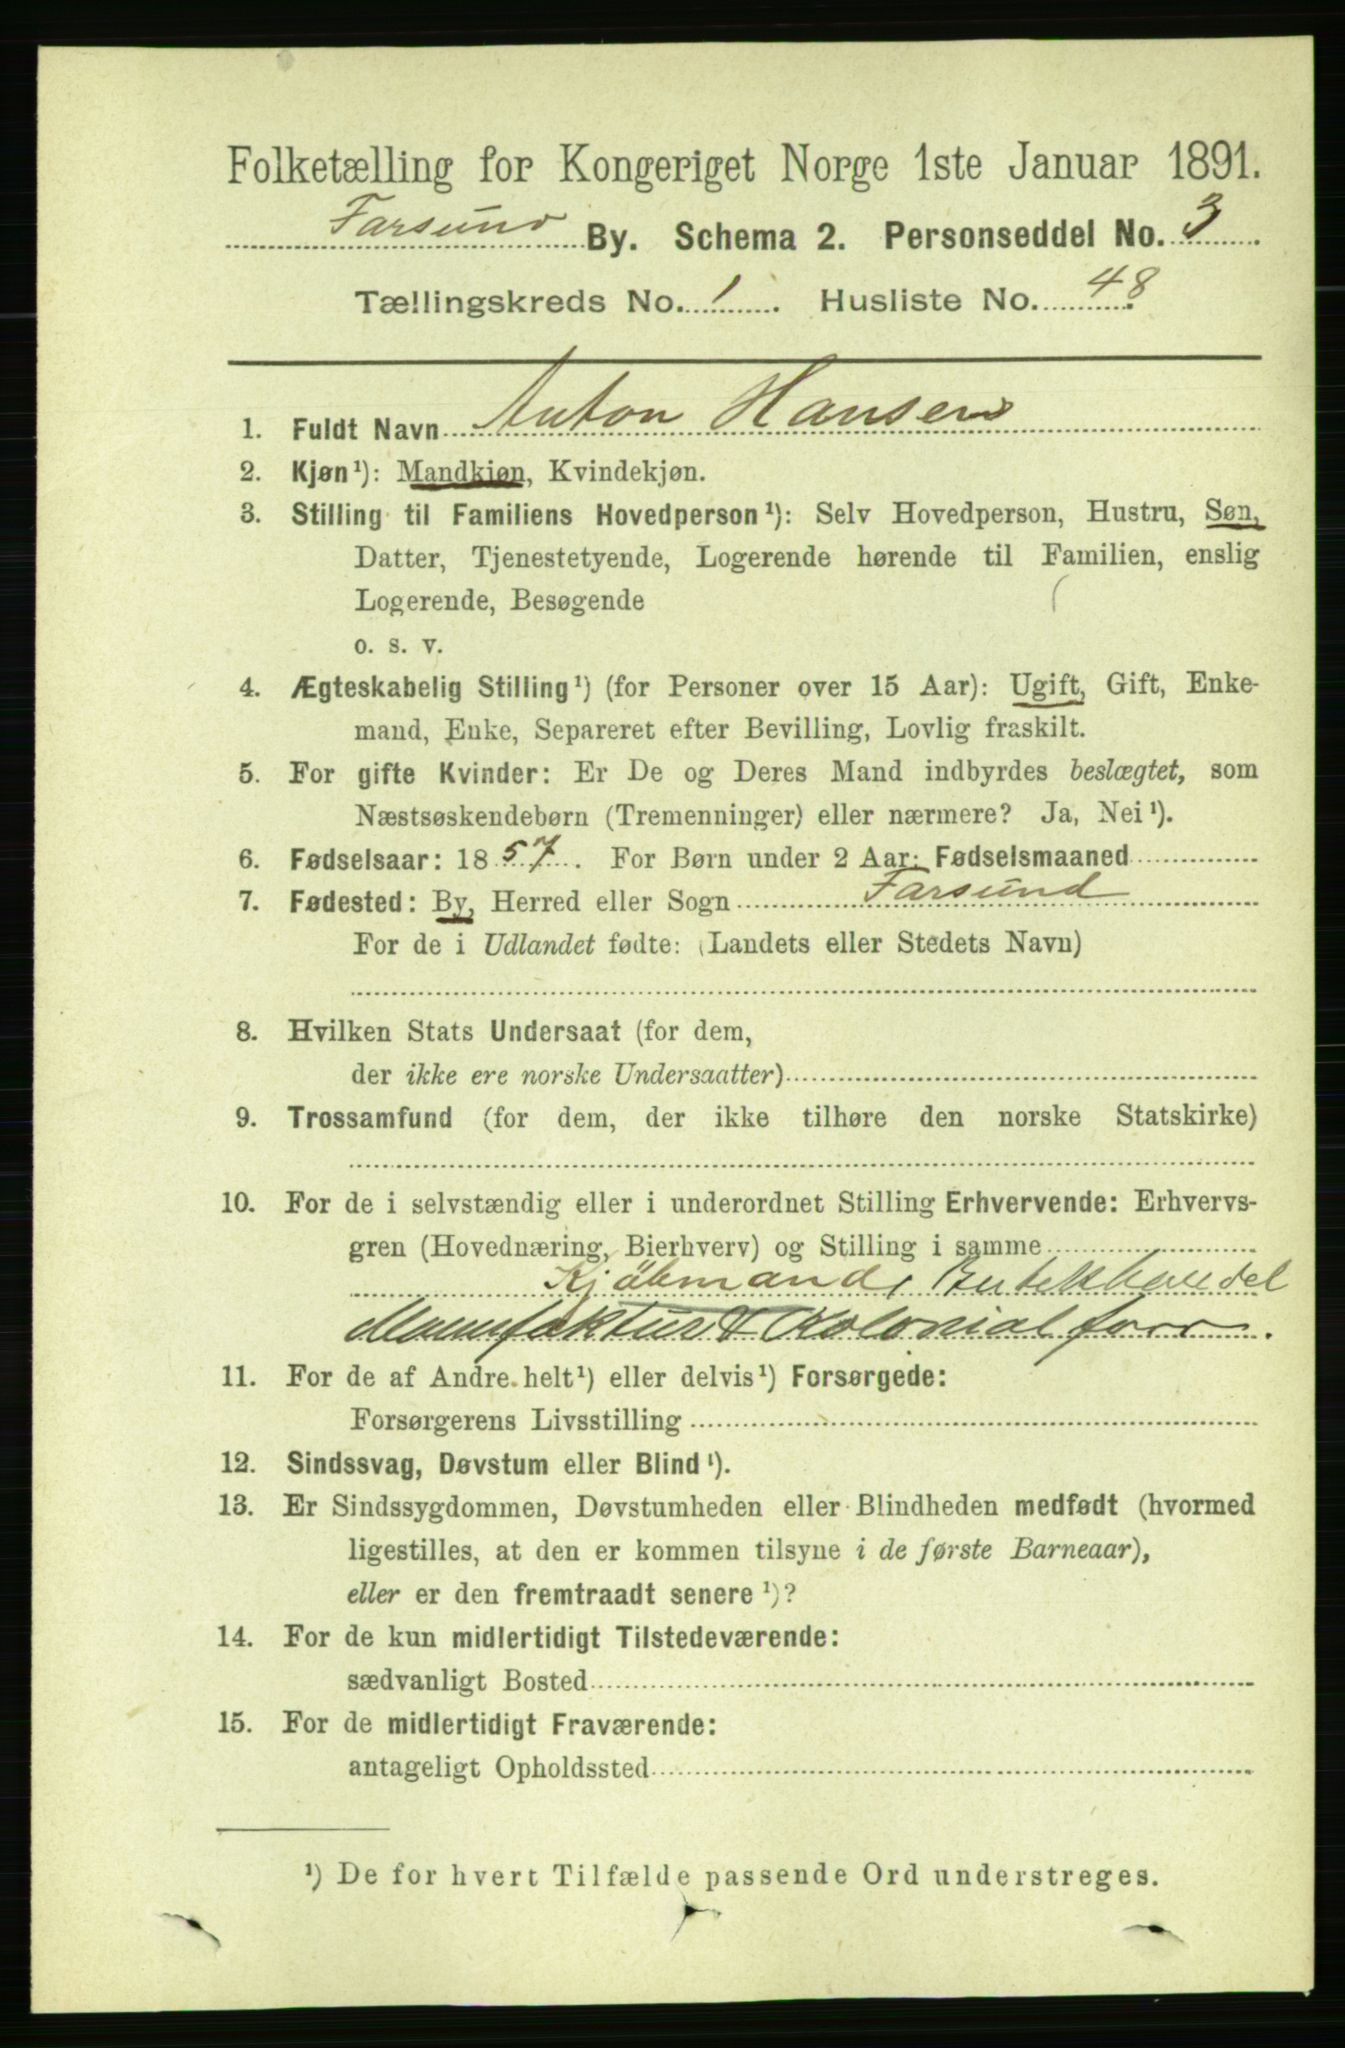 Folketælling for Kongeriget Norge 1ste Januar 1891.
Farsund By. Schema 2. Personseddel No. 3
Tællingskreds No. 1. Husliste No. 48.
1. Fuldt Navn Anton Hansen
2. Kjøn¹): Mandkjøn, Kvindekjøn.
3. Stilling til Familiens Hovedperson¹): Selv Hovedperson, Hustru, Søn,
Datter, Tjenestetyende, Logerende hørende til Familien, enslig
Logerende, Besøgende
o. s. v.
4. Ægteskabelig Stilling¹) (for Personer over 15 Aar): Ugift, Gift, Enke-
mand, Enke, Separeret efter Bevilling, Lovlig fraskilt.
5. For gifte Kvinder: Er De og Deres Mand indbyrdes beslægtet, som
Næstsøskendebørn (Tremenninger) eller nærmere? Ja, Nei¹).
6. Fødselsaar: 1857. For Børn under 2 Aar: Fødselsmaaned
7. Fødested: By, Herred eller Sogn Farsund
For de i Udlandet fødte: (Landets eller Stedets Navn)
8. Hvilken Stats Undersaat (for dem,
der ikke ere norske Undersaatter)
9. Trossamfund (for dem, der ikke tilhøre den norske Statskirke)
10. For de i selvstændig eller i underordnet Stilling Erhvervende: Erhvervs-
gren (Hovednæring, Bierhverv) og Stilling i samme
Kjøbmand,
Manufaktur & Kolonial forr.
11. For de af Andre helt¹) eller delvis¹) Forsørgede:
Forsørgerens Livsstilling
12. Sindssvag, Døvstum eller Blind¹).
13. Er Sindssygdommen, Døvstumheden eller Blindheden medfødt (hvormed
ligestilles, at den er kommen tilsyne i de første Barneaar),
eller er den fremtraadt senere¹)?
14. For de kun midlertidigt Tilstedeværende:
sædvanligt Bosted
15. For de midlertidigt Fraværende:
antageligt Opholdssted
¹) De for hvert Tilfælde passende Ord understreges.